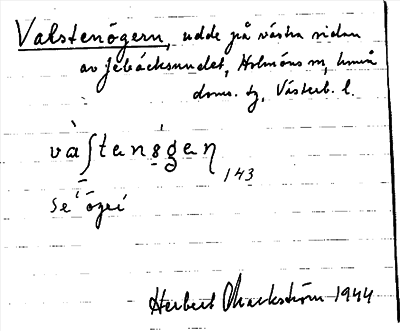 Valstenögern, udde på västra sidan
av Jebäcksuudet, Holmöns sn, Umeå
doms. tg, Västerb. l.
va̱ʃtensg̱eɳ
143
Se ögrí
Herbert Markström 1944